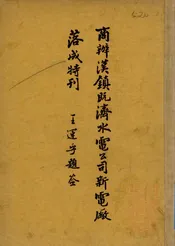 商辦漢鎮既濟水電公司新電廠
落成特刊
王運孚題簽